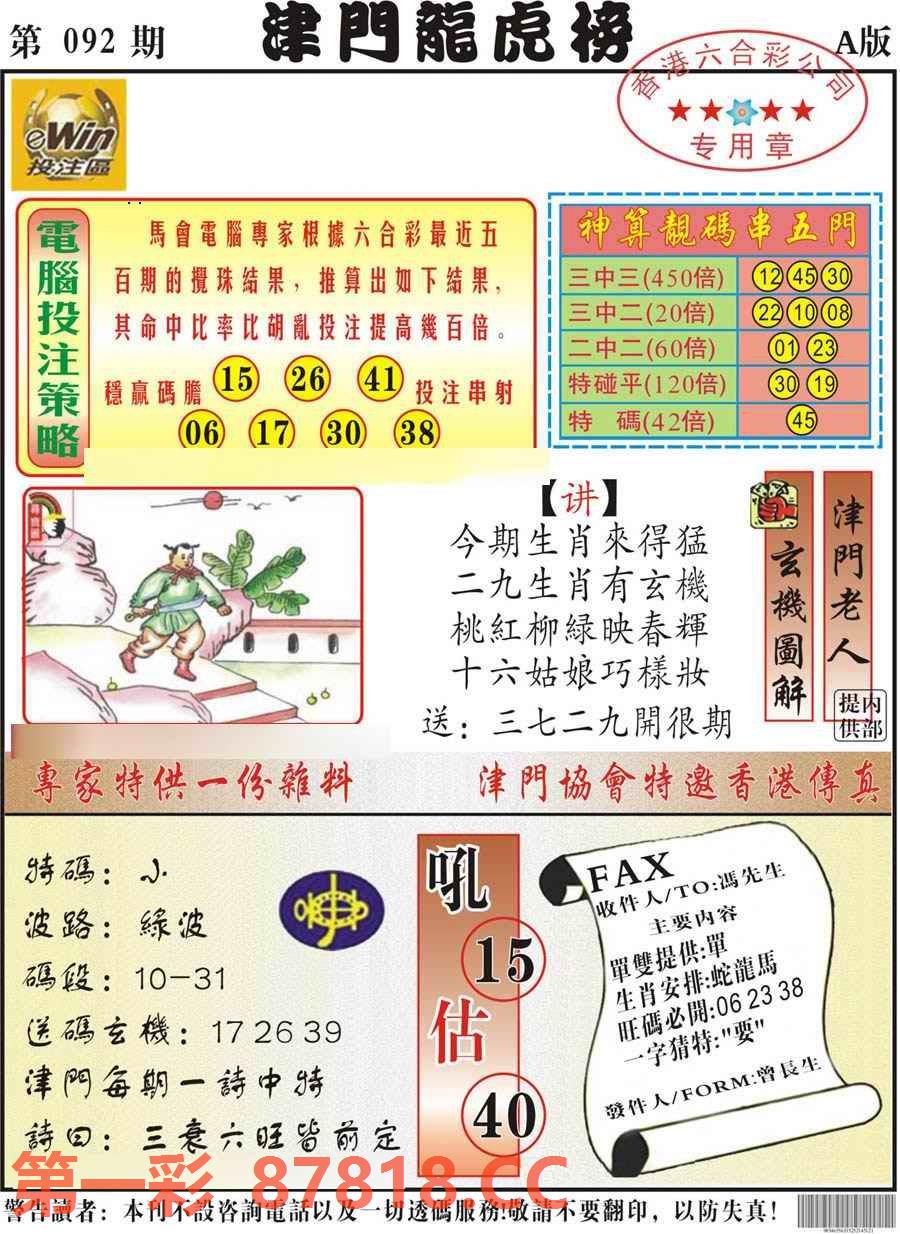 第 092 期
津門龍虎榜
A版
香港六合彩公司
专用章
eWin
投注區
電腦投注策略
馬會電腦專家根據六合彩最近五
百期的攪珠結果，推算出如下結果，
其命中比率比胡亂投注提高幾百倍。
穩贏碼膽 15 26 41 投注串射
06 17 30 38
神算靚碼串五門
三中三(450倍) 12 45 30
三中二(20倍) 22 10 08
二中二(60倍) 01 23
特碰平(120倍) 30 19
特 碼(42倍) 45
【讲】
今期生肖來得猛
二九生肖有玄機
桃紅柳綠映春輝
十六姑娘巧樣妝
送：三七二九開很期
玄機圖解
津門老人
内部提供
專家特供一份雜料
津門協會特邀香港傳真
特碼：小
波路：綠波
碼段：10-31
送碼玄機：17 26 39
津門每期一詩中特
詩曰：三衰六旺皆前定
吼
15
估
40
FAX
收件人/TO:馮先生
主要内容
單雙提供:單
生肖安排:蛇龍馬
旺碼必開:06 23 38
一字猜特:"要"
發件人/FORM:曾長生
第一彩 87818.CC
警告讀者：本刊不設咨詢電話以及一切透碼服務!敬請不要翻印，以防失真!